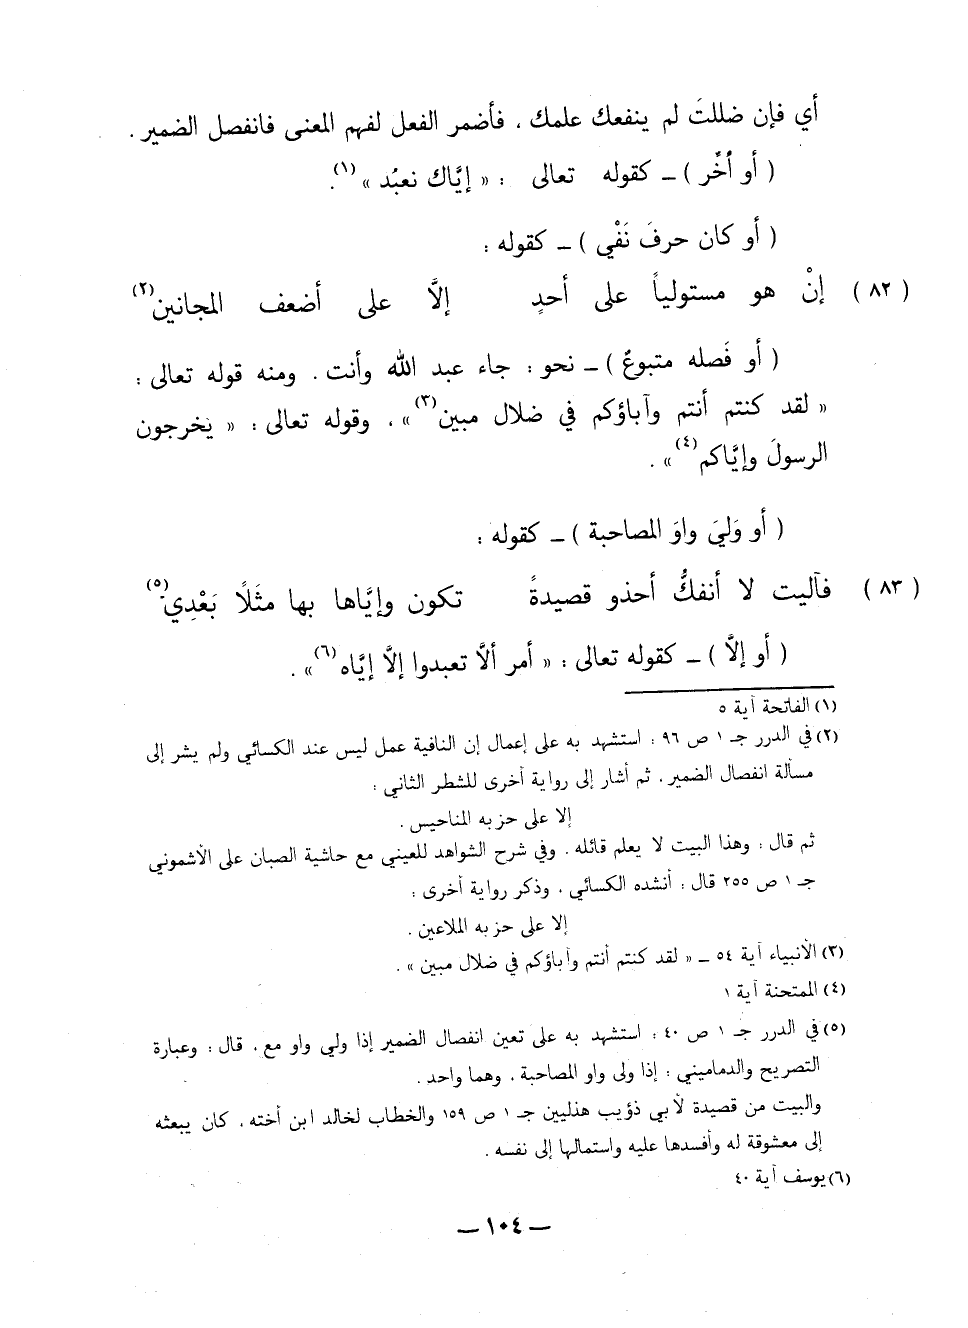 أي فإن ضللتَ لم ينفعك علمك ، فأضمر الفعل لفهم المعنى فانفصل الضمير .
( أو أُخِّر ) ــ كقوله تعالى : « إيَّاك نعبُد »(١).
( أو كان حرفَ نَفْي ) ــ كقوله :
( ٨٢ ) إنْ هو مستولياً على أحدٍ إلَّا على أضعف المجانين(٢)
( أو فَصله متبوعٌ ) ــ نحو : جاء عبد الله وأنت . ومنه قوله تعالى :
« لقد كنتم أنتم وآباؤكم في ضلال مبين(٣) » ، وقوله تعالى : « يخرجون
الرسولَ وإيَّاكم(٤) » .
( أو وَليَ واوَ المصاحبة ) ــ كقوله :
( ٨٣ ) فآليت لا أنفكُّ أحذو قصيدةً تكون وإيَّاها بها مثَلًا بَعْدِي(٥)
( أو إلَّا ) ــ كقوله تعالى : « أمر ألَّا تعبدوا إلَّا إيَّاه(٦) » .
(١) الفاتحة آية ٥
(٢) في الدرر جـ ١ ص ٩٦ : استشهد به على إعمال إن النافية عمل ليس عند الكسائي ولم يشر إلى
مسألة انفصال الضمير . ثم أشار إلى رواية أخرى للشطر الثاني :
إلا على حزبه المناحيس .
ثم قال : وهذا البيت لا يعلم قائله . وفي شرح الشواهد للعيني مع حاشية الصبان على الأشموني
جـ ١ ص ٢٥٥ قال : أنشده الكسائي ، وذكر رواية أخرى :
إلا على حزبه الملاعين .
(٣) الأنبياء آية ٥٤ ــ « لقد كنتم أنتم وآباؤكم في ضلال مبين » .
(٤) الممتحنة آية ١
(٥) في الدرر جـ ١ ص ٤٠ : استشهد به على تعين انفصال الضمير إذا ولي واو مع ، قال : وعبارة
التصريح والدماميني : إذا ولى واو المصاحبة ، وهما واحد .
والبيت من قصيدة لأبي ذؤيب هذليين جـ ١ ص ١٥٩ والخطاب لخالد ابن أخته ، كان يبعثه
إلى معشوقة له وأفسدها عليه واستمالها إلى نفسه .
(٦) يوسف آية ٤٠
ــ ١٠٤ ــ